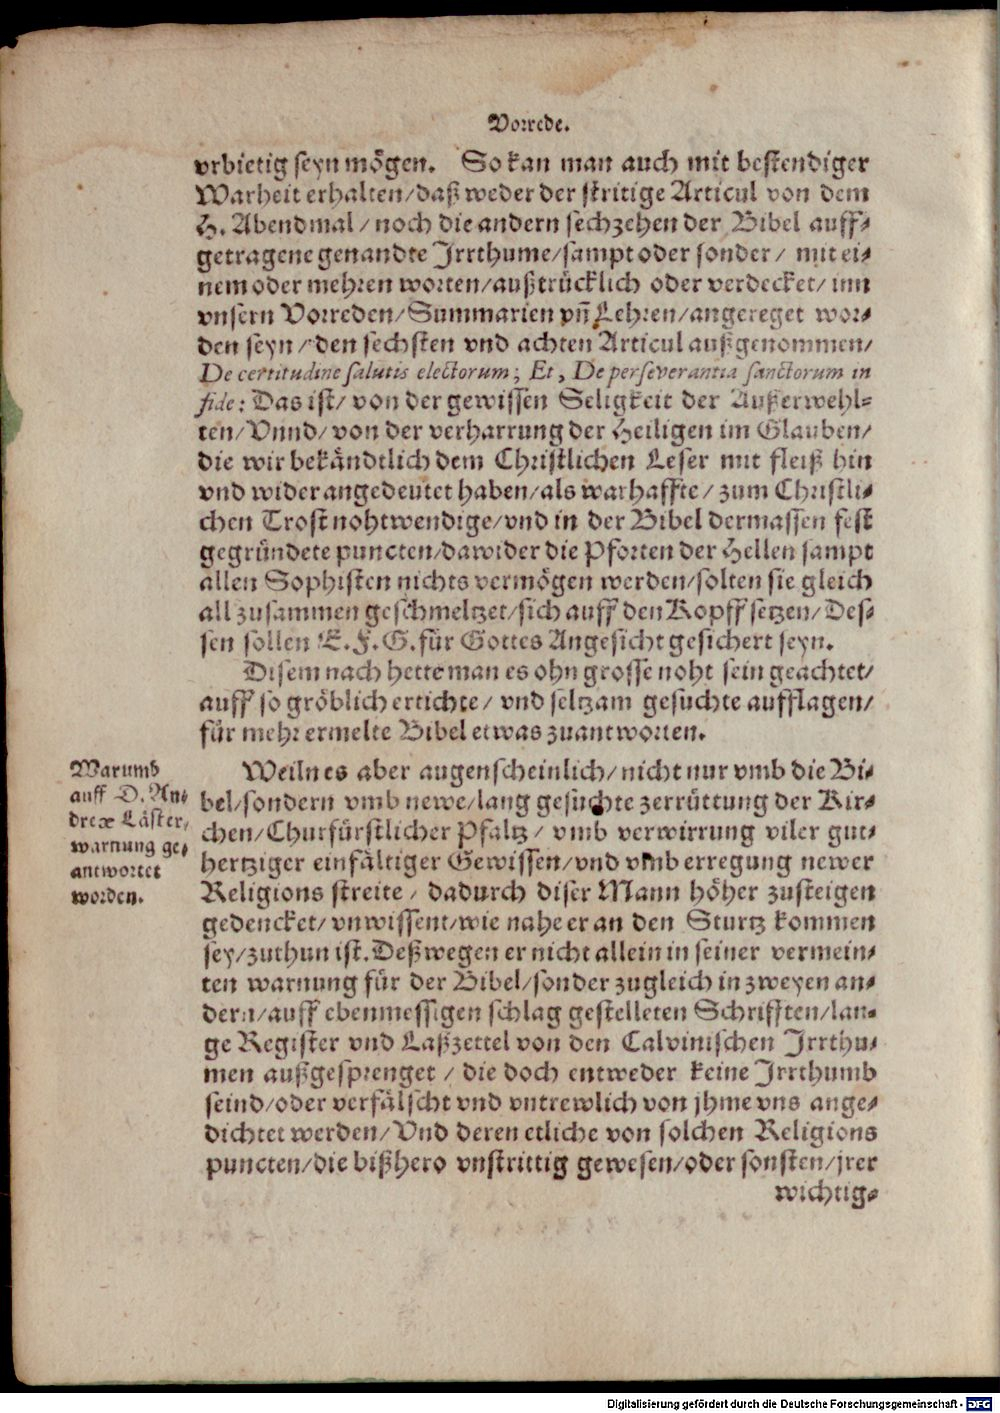 Vorrede.
vrbietig seyn mögen. So kan man auch mit bestendiger
Warheit erhalten/daß weder der stritige Articul von dem
H. Abendmal/noch die andern sechzehen der Bibel auff-
getragene genandte Jrrthume/sampt oder sonder/ mit ei-
nem oder mehren worten/außtrücklich oder verdecket/ inn
vnsern Vorreden/Summarien vñ Lehren/angereget wor-
den seyn/den sechsten vnd achten Articul außgenommen/
De certitudine salutis electorum; Et, De perseverantia sanctorum in
fide: Das ist/ von der gewissen Seligkeit der Außerwehl-
ten/Vnnd/von der verharrung der Heiligen im Glauben/
die wir bekändtlich dem Christlichen Leser mit fleiß hin
vnd wider angedeutet haben/als warhaffte/ zum Christli-
chen Trost nohtwendige/vnd in der Bibel dermassen fest
gegründete puncten/dawider die Pforten der Hellen sampt
allen Sophisten nichts vermögen werden/solten sie gleich
all zusammen geschmeltzet/sich auff den Kopff setzen/Des-
sen sollen E.F.G. für Gottes Angesicht gesichert seyn.
Disem nach hette man es ohn grosse noht sein geachtet/
auff so gröblich ertichte/ vnd seltzam gesuchte aufflagen/
für mehr ermelte Bibel etwas zuantworten.
Warumb
auff D. An-
dreæ Läster-
warnung ge-
antwortet
worden.
Weiln es aber augenscheinlich/nicht nur vmb die Bi-
bel/sondern vmb newe/lang gesuchte zerrüttung der Kir-
chen/Churfürstlicher Pfaltz/ vmb verwirrung viler gut-
hertziger einfältiger Gewissen/vnd vmb erregung newer
Religions streite/ dadurch diser Mann höher zusteigen
gedencket/vnwissent/wie nahe er an den Sturtz kommen
sey/zuthun ist. Deßwegen er nicht allein in seiner vermein-
ten warnung für der Bibel/sonder zugleich in zweyen an-
dern/auff ebenmessigen schlag gestelleten Schrifften/lan-
ge Register vnd Laßzettel von den Calvinischen Jrrthu-
men außgesprenget/ die doch entweder keine Jrrthumb
seind/oder verfälscht vnd vntrewlich von jhme vns ange-
dichtet werden/Vnd deren etliche von solchen Religions
puncten/die bißhero vnstrittig gewesen/oder sonsten/jrer
wichtig-
Digitalisierung gefördert durch die Deutsche Forschungsgemeinschaft - DFG